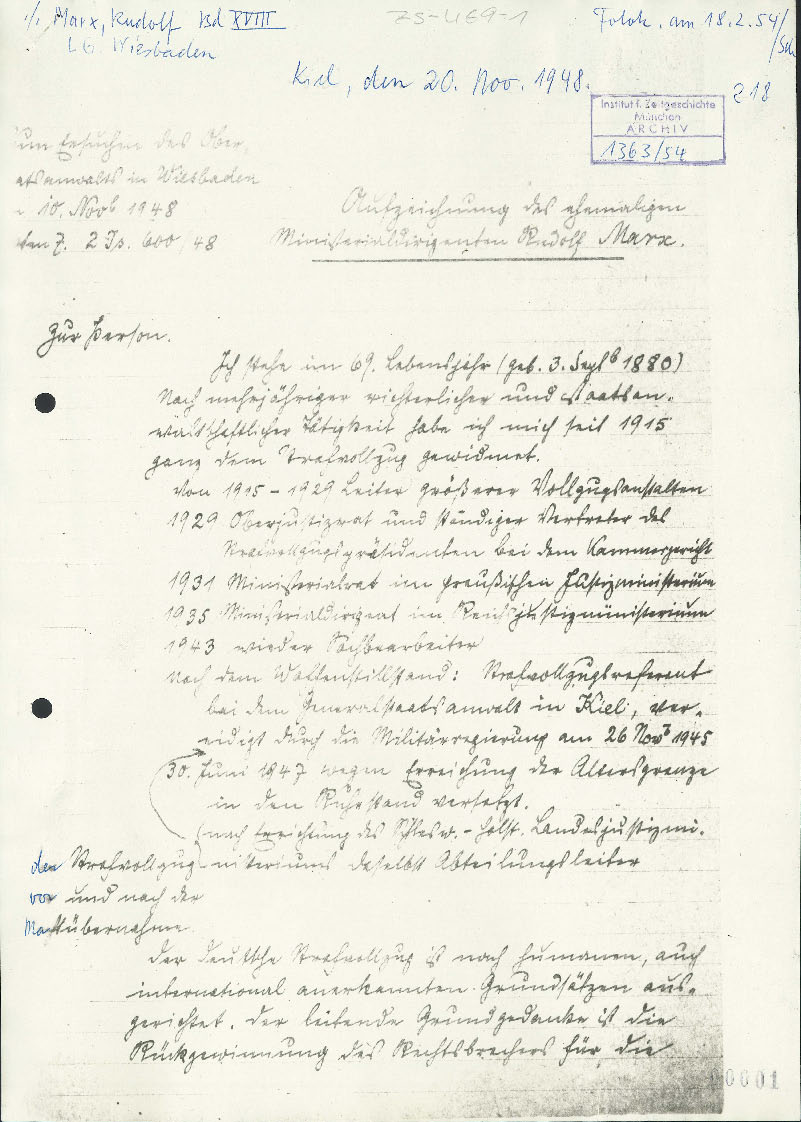 1/. Marx, Rudolf Bd XVIII
ZS-469-1
Fotok. am 18.2.54/Sch
LG. Wiesbaden
Kiel, den 20. Nov. 1948.
218
Institut f. Zeitgeschichte
München
ARCHIV
1363/54
um Ersuchen des Ober-
atsanwalts in Wiesbaden
10. Novb 1948
ten Z. 2 Js. 600/48
Aufzeichnung des ehemaligen
Ministerialdirigenten Rudolf Marx.
Zur Person.
Ich stehe im 69. Lebensjahr (geb. 3. Septb 1880)
Nach mehrjähriger richterlicher und staatsan-
waltschaftlicher Tätigkeit habe ich mich seit 1915
ganz dem Strafvollzug gewidmet.
Von 1915 - 1929 Leiter größerer Vollzugsanstalten
1929 Oberjustizrat und ständiger Vertreter des
Strafvollzugspräsidenten bei dem Kammergericht
1931 Ministerialrat im Preußischen Justizministerium
1935 Ministerialdirigent im Reichsjustizministerium
1943 wieder Sachbearbeiter
nach dem Waffenstillstand: Strafvollzugsreferent
bei dem Generalstaatsanwalt in Kiel, ver-
eidigt durch die Militärregierung am 26 Novb 1945
30. Juni 1947 wegen Erreichung der Altersgrenze
in den Ruhestand versetzt.
(nach Errichtung des Schlesw.-Holst. Landesjustizmi-
nisteriums daselbst Abteilungsleiter
der Strafvollzug
vor und nach der
Machtübernahme.
Der deutsche Strafvollzug ist nach humanen, auch
international anerkannten Grundsätzen aus-
gerichtet. Der leitende Grundgedanke ist die
Rückgewinnung des Rechtsbrechers für die
00001